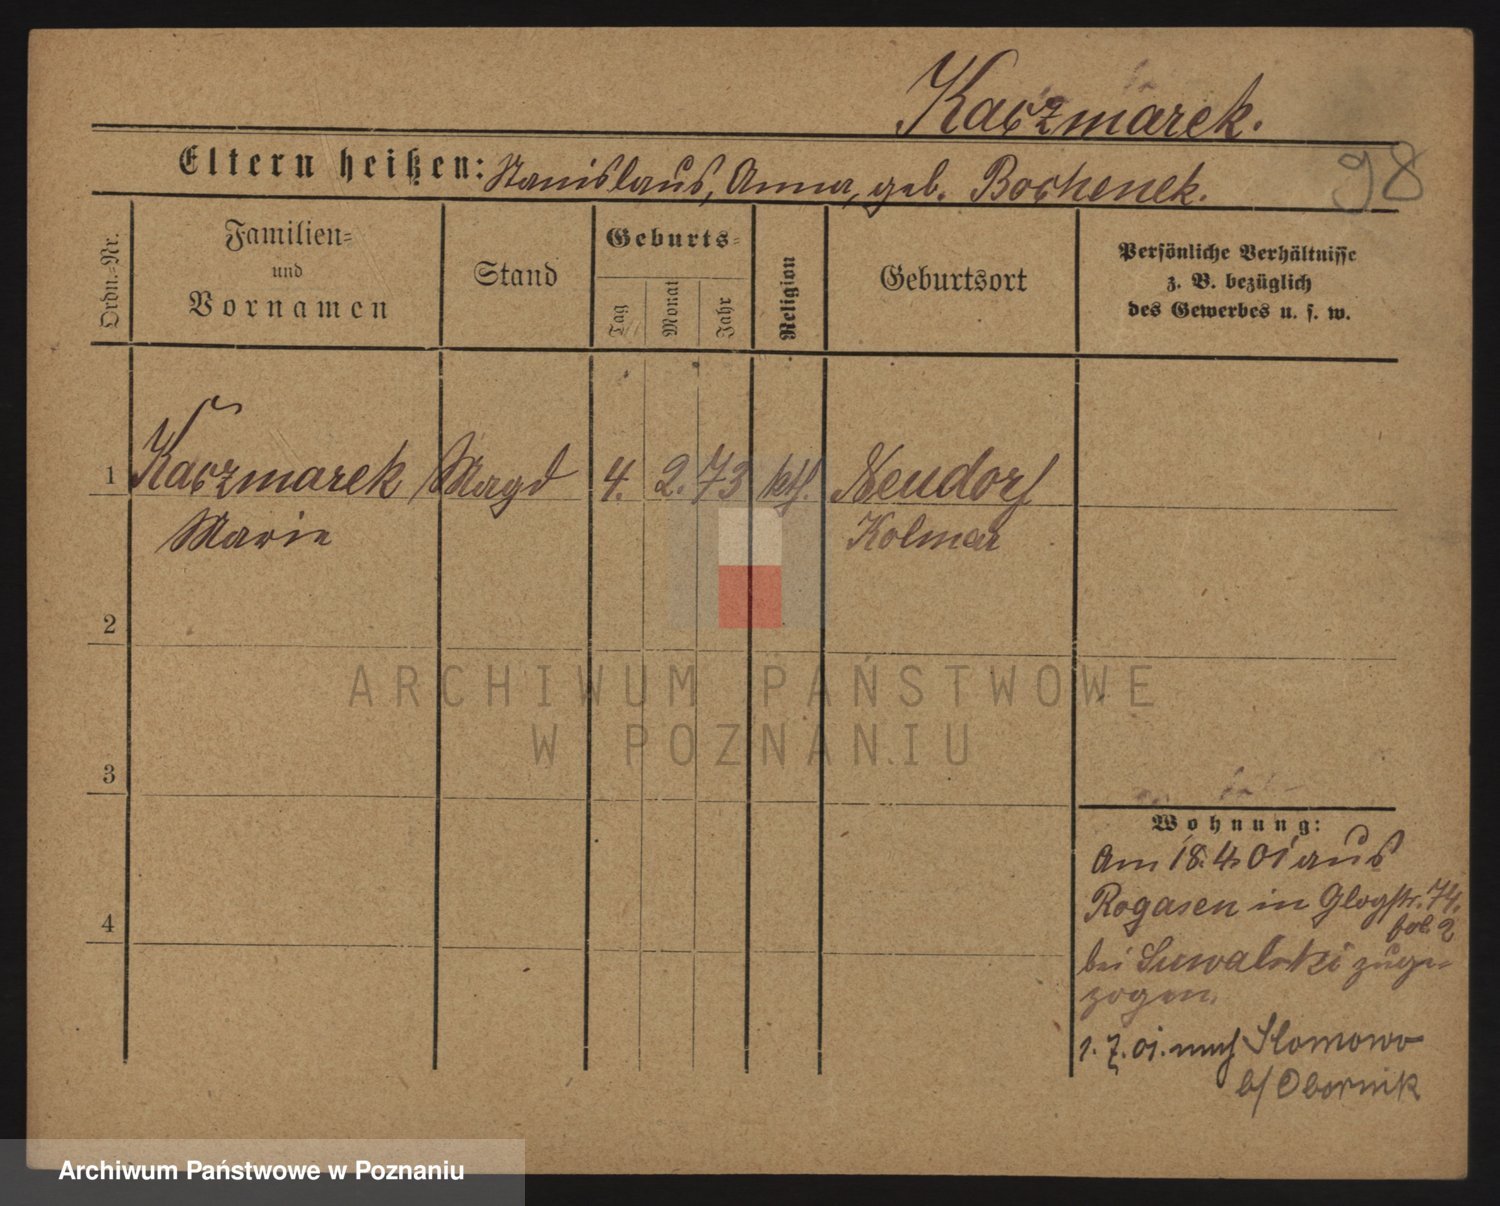 Kaczmarek.
98
Eltern heißen: Stanislaus, Anna, geb. Bochenek.
Ordn.-Nr.
Familien-
und
Vornamen
Stand
Geburts-
Tag
Monat
Jahr
Religion
Geburtsort
Persönliche Verhältnisse
z. B. bezüglich
des Gewerbes u. s. w.
1 Kaczmarek Magd 4. 2. 73 kth. Neudorf
Marie Kolmar
2
3
4
Wohnung:
Am 18.4.01 aus
Rogasen in Glogstr. 74.
bei Suwalski zuge-
zogen.
1.7.01. nach Slomowo
b/ Obornik
ARCHIWUM PAŃSTWOWE
W POZNANIU
Archiwum Państwowe w Poznaniu